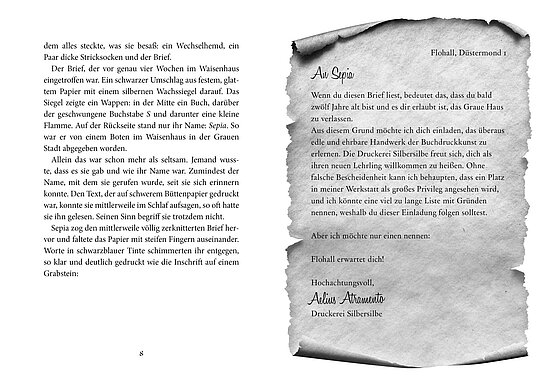 dem alles steckte, was sie besaß: ein Wechselhemd, ein
Paar dicke Stricksocken und der Brief.
Der Brief, der vor genau vier Wochen im Waisenhaus
eingetroffen war. Ein schwarzer Umschlag aus festem, glat-
tem Papier mit einem silbernen Wachssiegel darauf. Das
Siegel zeigte ein Wappen: in der Mitte ein Buch, darüber
der geschwungene Buchstabe S und darunter eine kleine
Flamme. Auf der Rückseite stand nur ihr Name: Sepia. So
war er von einem Boten im Waisenhaus in der Grauen
Stadt abgegeben worden.
Allein das war schon mehr als seltsam. Jemand wuss-
te, dass es sie gab und wie ihr Name war. Zumindest der
Name, mit dem sie gerufen wurde, seit sie sich erinnern
konnte. Den Text, der auf schwerem Büttenpapier gedruckt
war, konnte sie mittlerweile im Schlaf aufsagen, so oft hatte
sie ihn gelesen. Seinen Sinn begriff sie trotzdem nicht.
Sepia zog den mittlerweile völlig zerknitterten Brief her-
vor und faltete das Papier mit steifen Fingern auseinander.
Worte in schwarzblauer Tinte schimmerten ihr entgegen,
so klar und deutlich gedruckt wie die Inschrift auf einem
Grabstein:
8
Flohall, Düstermond 1
An Sepia
Wenn du diesen Brief liest, bedeutet das, dass du bald
zwölf Jahre alt bist und es dir erlaubt ist, das Graue Haus
zu verlassen.
Aus diesem Grund möchte ich dich einladen, das überaus
edle und ehrbare Handwerk der Buchdruckkunst zu
erlernen. Die Druckerei Silbersilbe freut sich, dich als
ihren neuen Lehrling willkommen zu heißen. Ohne
falsche Bescheidenheit kann ich behaupten, dass ein Platz
in meiner Werkstatt als großes Privileg angesehen wird,
und ich könnte eine viel zu lange Liste mit Gründen
nennen, weshalb du dieser Einladung folgen solltest.
Aber ich möchte nur einen nennen:
Flohall erwartet dich!
Hochachtungsvoll,
Aelius Atramento
Druckerei Silbersilbe